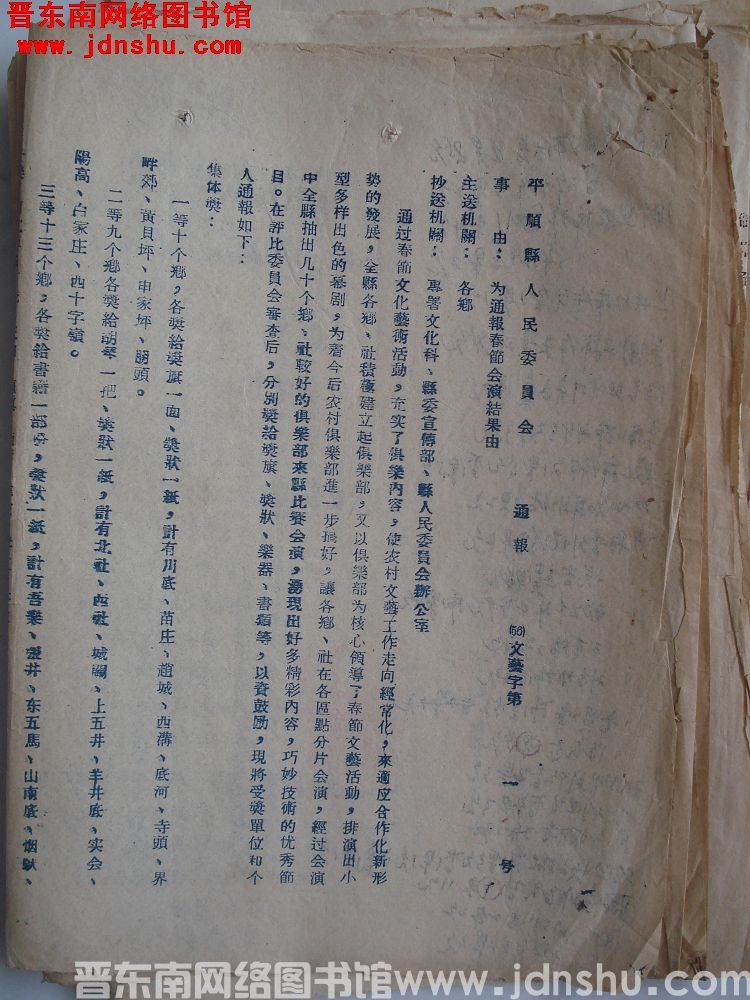 晋东南网络图书馆
www.jdnshu.com
平順縣人民委員会 通報 (56)文藝字第一号
事由：为通報春節会演結果由
主送机關：各鄉
抄送机關：專署文化科、縣委宣傳部、縣人民委員会辦公室
通过春節文化藝術活動，充实了俱樂內容，使农村文藝工作走向經常化，來適应合作化新形
勢的發展，全縣各鄉、社積極建立起俱樂部，又以俱樂部为核心領導了春節文藝活動，排演出小
型多样出色的幕剧，为着今后农村俱樂部進一步搞好，讓各鄉、社在各區點分片会演，經过会演
中全縣抽出几十个鄉、社較好的俱樂部來縣比賽会演，湧現出好多精彩內容，巧妙技術的优秀節
目。在評比委員会審查后，分別獎給獎旗、獎狀、樂器、書類等，以資鼓勵，現將受獎單位和个
人通報如下：
集体獎：
一等十个鄉，各獎給獎旗一面、獎狀一紙，計有川底、苗庄、趙城、西溝、底河、寺頭、界
畔郊、黃貝坪、申家坪、朋頭。
二等九个鄉各獎給胡琴一把、獎狀一紙，計有北社、西社、城關、上五井、羊井底、实会、
陽高、白家庄、西十字嶺。
三等十三个鄉，各獎給書籍一部分，獎狀一紙，計有吾樂、井、东五馬、山南底、烟馱、
晋东南网络图书馆 www.jdnshu.com